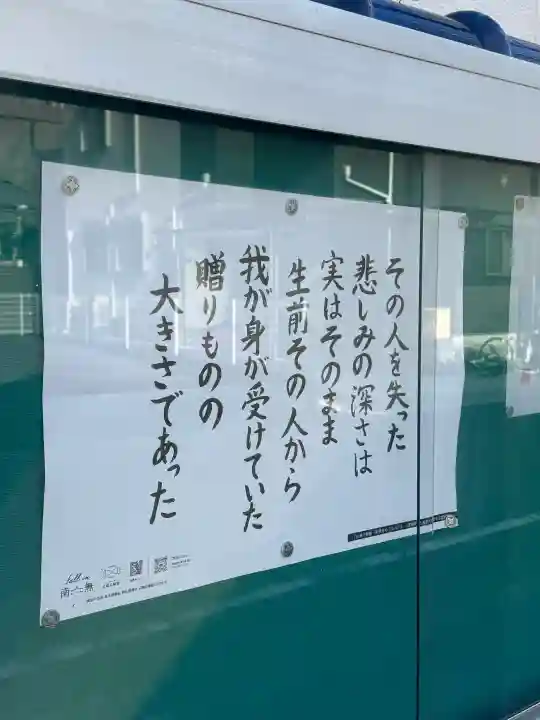 その人を失った
悲しみの深さは
実はそのまま
生前その人から
我が身が受けていた
贈りものの
大きさであった